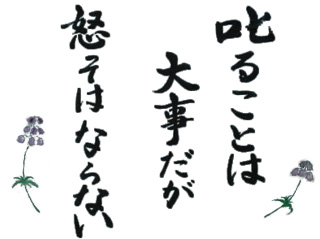 叱ることは
大事だが
怒そはならない